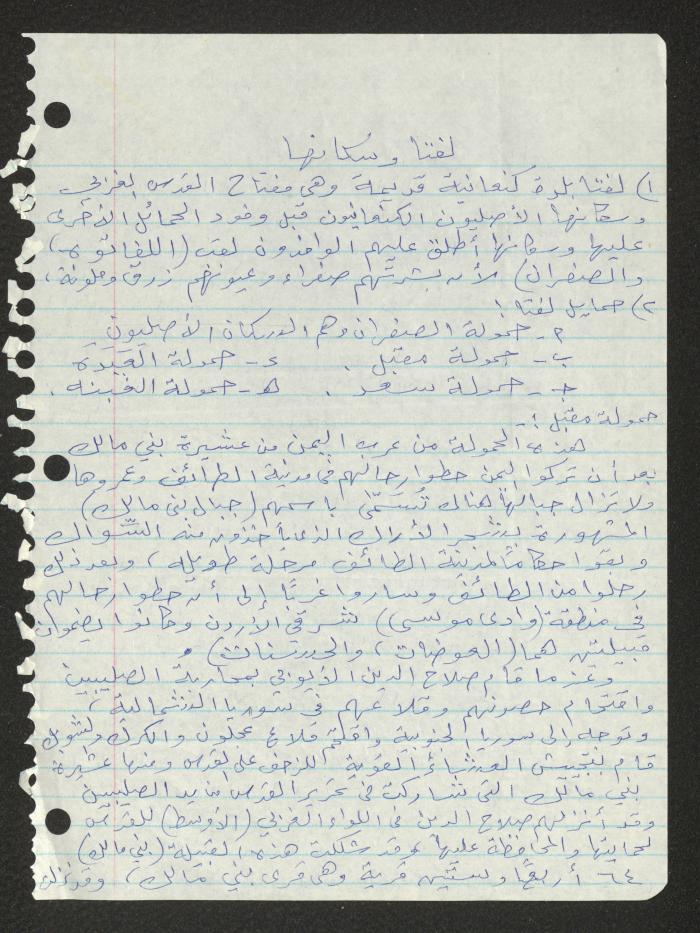 لفتا وسكانها
١) لفتا بلدة كنعانية قديمة وهي مفتاح القدس الغربي
وسكانها الأصليون الكنعانيون قبل وفود الحمائل الأخرى
عليها وسكانها أطلق عليهم الوافدون لقب (اللفاتوه)
والصفران) لأن بشرتهم صفراء وعيونهم زرق وملونة،
٢) حمايل لفتا:
م - حمولة الصفران وهم السكان الأصليون
ب - حمولة مقبل . ء - حمولة العَيدة
جـ - حمولة سعد . هـ - حمولة الغبنه .
حمولة مقبل :-
هذه الحمولة من عرب اليمن من عشيرة بني مالك
بعد أن تركوا اليمن حطوا رحالهم في مدينة الطائف وعمروها
ولا تزال جبالها هناك تُسمّى باسمهم (جبال بني مالك)
المشهورة بشجر الأراك الذي يأخذون منه السِّواك
وبقوا حكاماً لمدينة الطائف مرحلة طويلة، وبعد ذلك
رحلوا من الطائف وساروا غربًا إلى أن حطوا رحالهم
في منطقة (وادي موسى) شرقي الأردن وكانوا يضمون
قبيلتين هما (العوضات، والحسنات) .
وعندما قام صلاح الدين الأيوبي بمحاربة الصليبيين
واقتحام حصونهم وقلاعهم في سوريا الشمالية،
وتوجه إلى سوريا الجنوبية واقتحم قلاع عجلون والكرك والشوبك
قام بتجييش العشائر القوية للزحف على القدس ومنها عشيرة
بني مالك التي شاركت في تحرير القدس من يد الصليبيين
وقد أنزلهم صلاح الدين في اللواء الغربي (الأوسط) للقدس
لحمايتها والمحافظة عليها وقد شكلت هذه القبيلة (بني مالك)
٦٤ أربعًا وستين قرية وهي قرى بني مالك)، وقد نزلت